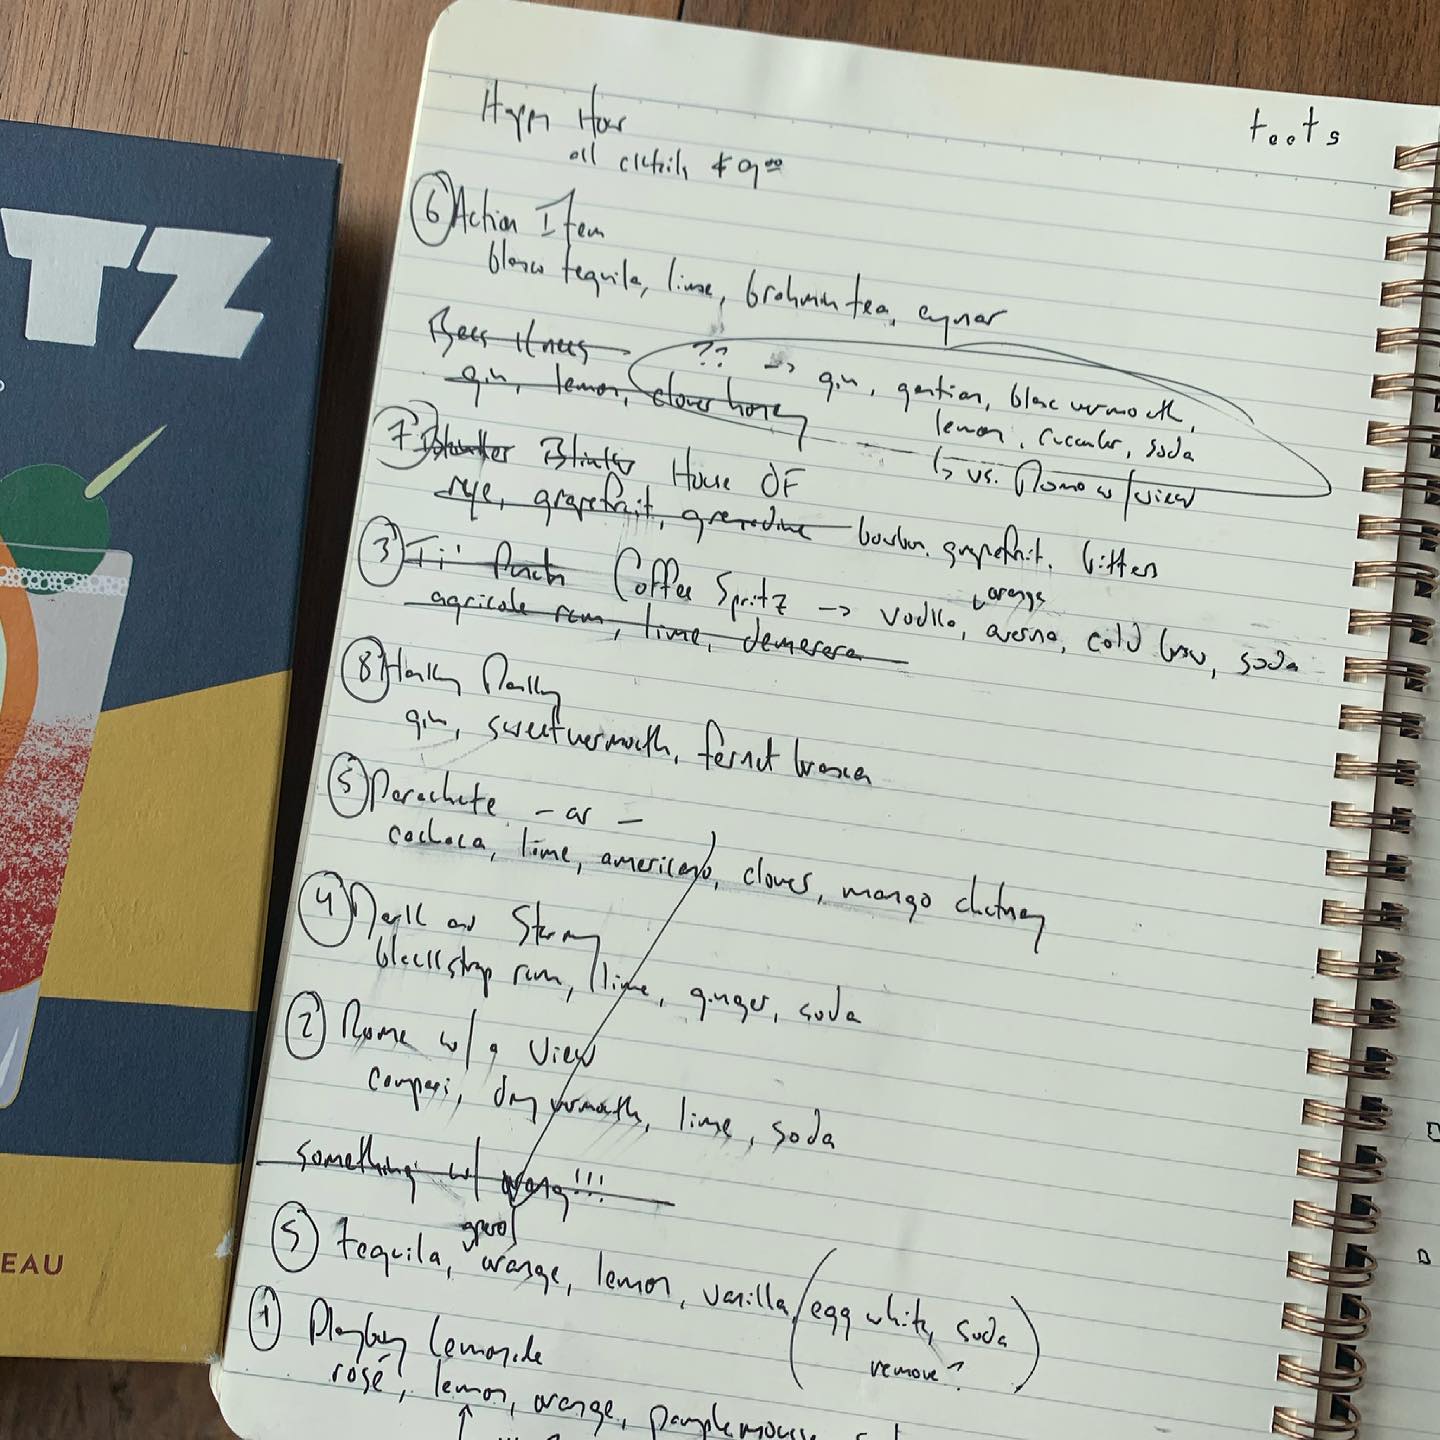 TZ
EAU
toots
Happy Hour
all cktails $9.00
6 Action Item
blanco tequila, lime, brahmin tea, cynar
Bees Knees
?? -> gin, gentian, blanc vermouth,
gin, lemon, clover honey
lemon, cucumber, soda
↳ vs. Rome w/ view
7 Blinker House OF
rye, grapefruit, grenadine bourbon, grapefruit, bitters
3 Ti' Punch Coffee Spritz -> vodka, orange averna, cold brew, soda
agricole rum, lime, demerera
8 Hanky Panky
gin, sweet vermouth, fernet branca
5 Parachute - or -
cachaca, lime, americano, cloves, mango chutney
4 Dark and Stormy
blackstrap rum, lime, ginger, soda
2 Rome w/ a view
campari, dry vermouth, lime, soda
something w/ orang!!!
5 tequila, orange, lemon, vanilla, (egg white, soda)
remove?
1 Playboy Lemonade
rosé, lemon, orange, pamplemousse,